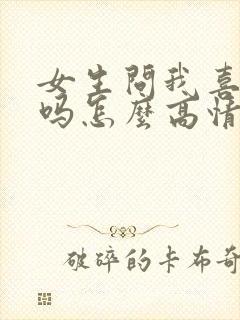 女生問我喜
吗怎麼高情
破碎的卡布奇